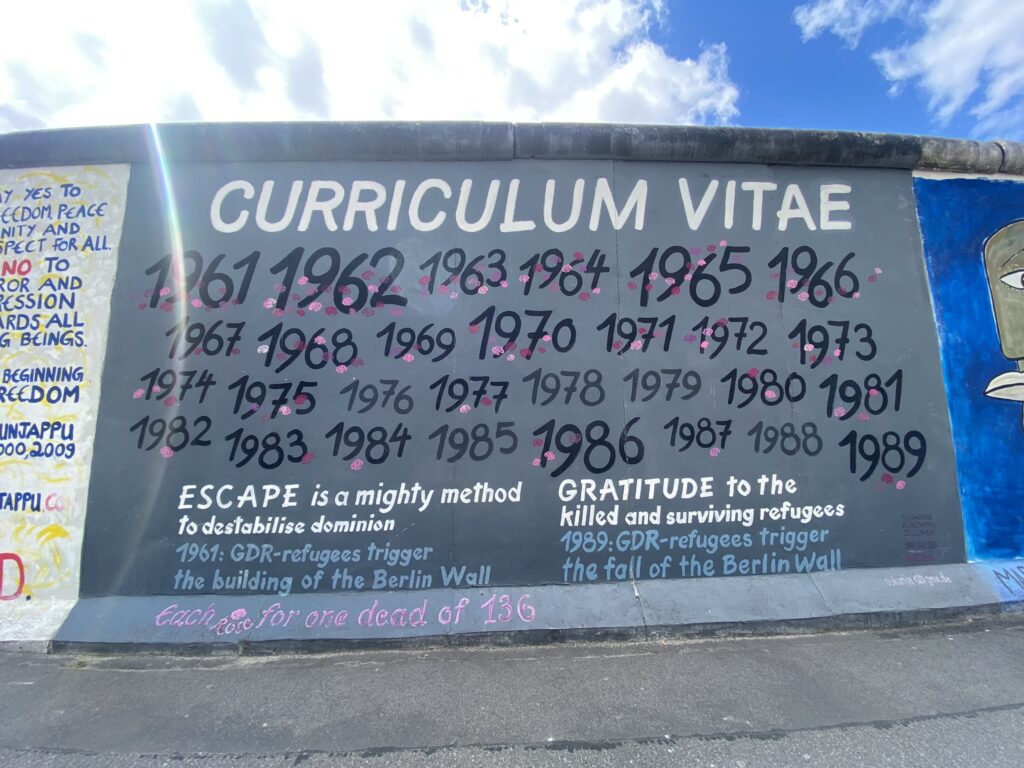 AY YES TO
EEDOM, PEACE
NITY AND
SPECT FOR ALL.
NO TO
ROR AND
RESSION
ARDS ALL
G BEINGS.
BEGINNING
REEDOM
UNJAPPU
000, 2009
TAPPU.CO
D.
CURRICULUM VITAE
1961 1962 1963 1964 1965 1966
1967 1968 1969 1970 1971 1972 1973
1974 1975 1976 1977 1978 1979 1980 1981
1982 1983 1984 1985 1986 1987 1988 1989
ESCAPE is a mighty method
to destabilise dominion
1961: GDR-refugees trigger
the building of the Berlin Wall
GRATITUDE to the
killed and surviving refugees
1989: GDR-refugees trigger
the fall of the Berlin Wall
SUSANNE
KUNJAPPU
JELLINEK
Each rose for one dead of 136